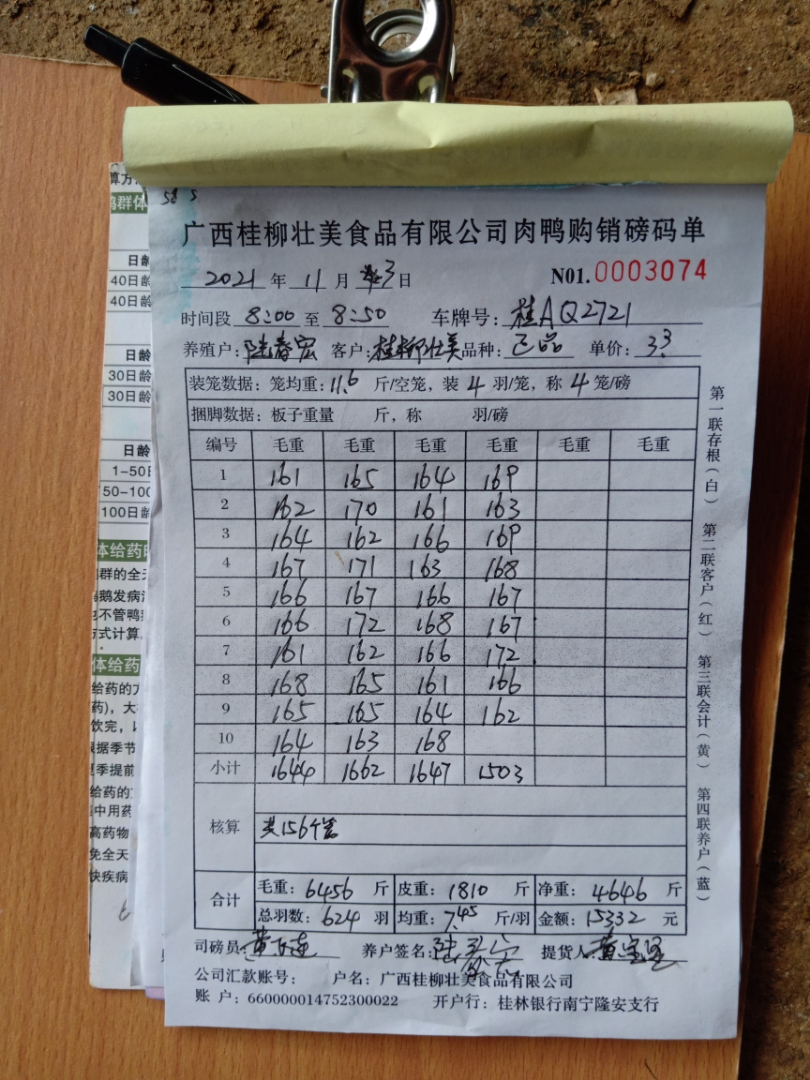 算方
58 5
鸡群体
日龄
40日龄
40日龄
日龄
30日龄
30日龄
日龄
1-50日
50-100
100日龄
体给药时
群的全天
鹅发病
也不管鸭
方式计算
体给药
给药的方
药)，大
饮完，
根据季节
夏季提前
给药的
中用药
高药物
免全天
快疾病
广西桂柳壮美食品有限公司肉鸭购销磅码单
2021 年 11 月 3 日 N01.0003074
时间段 8:00 至 8:50 车牌号：桂AQ2721
养殖户：陆春宏 客户：桂柳壮美 品种：正品 单价：3.3
装笼数据：笼均重：11.6 斤/空笼，装 4 羽/笼，称 4 笼/磅
捆脚数据：板子重量 斤，称 羽/磅
编号 毛重 毛重 毛重 毛重 毛重 毛重
1 161 165 164 169
2 162 170 161 163
3 164 162 166 169
4 167 171 163 168
5 166 167 166 167
6 166 172 168 167
7 161 162 166 172
8 168 165 161 166
9 165 165 164 162
10 164 163 168
小计 1644 1662 1647 1503
核算 共156个笼
合计 毛重：6456 斤 皮重：1810 斤 净重：4646 斤
总羽数：624 羽 均重：7.45 斤/羽 金额：15332 元
司磅员： 养户签名：陆春宏 提货人：
公司汇款账号： 户名：广西桂柳壮美食品有限公司
账 户：660000014752300022 开户行：桂林银行南宁隆安支行
第一联存根（白） 第二联客户（红） 第三联会计（黄） 第四联养户（蓝）